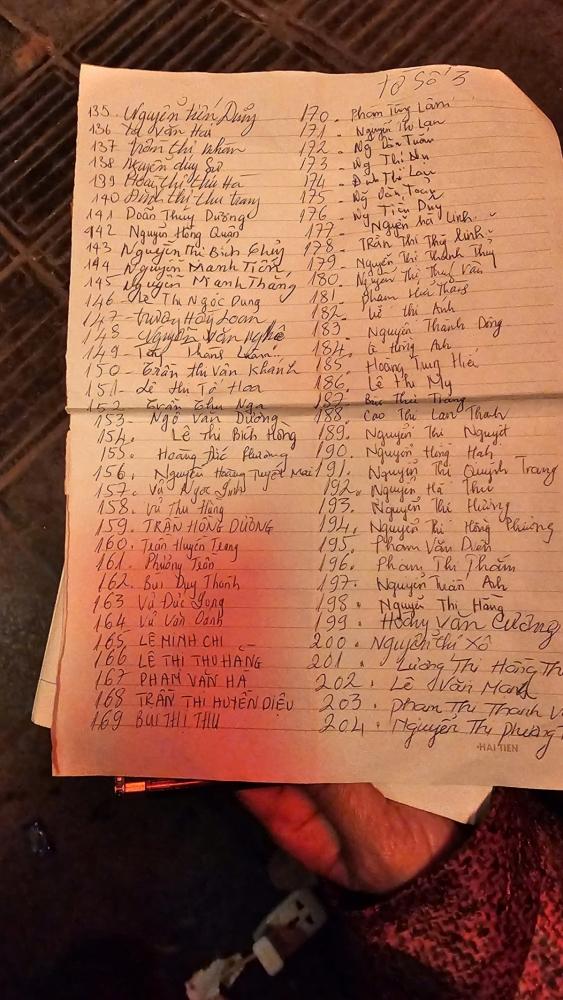 Tờ Số 3
135. Nguyễn Tiến Dũng
136 Văn Hai
137 Trần thị Nhàn
138 Nguyễn duy Sử
139 Phan thị thu Hà
140 Đinh thị thu trang
141 Doãn Thuỳ Dương
142 Nguyễn Hồng Quân
143 Nguyễn Thị Bích Thủy
144 Nguyễn Mạnh Tiến
145 Nguyễn Mạnh Thắng
146 Lê Thị Ngọc Dung
147 Trương Hồng Loan
148 Nguyễn Văn Nghĩa
149
150 Trần thị Vân Khánh
151 Lê thị Tố Hoa
152 Trần Thu Nga
153 Ngô Văn Dương
154. Lê Thị Bích Hồng
155. Hoàng Đức Phương
156. Nguyễn Hoàng Tuyết Mai
157. Vũ Ngọc
158. Vũ Thu Hằng
159. TRẦN HỒNG DƯƠNG
160. Trần Huyền Trang
161. Phương Trần
162. Bùi Duy Thanh
163 Vũ Đức Long
164 Vũ Văn Oanh
165 LÊ MINH CHI
166 LÊ THỊ THU HẰNG
167 PHẠM VĂN HÀ
168 TRẦN THỊ HUYỀN DIỆU
169 BÙI THỊ THU
170. Phạm Tùng Lâm
171. Nguyễn Thị Lan
172. Ng Văn Tuấn
173. Ng Thị
174. Đinh Thị Lan
175. Ng Văn Toàn
176. Ng Tiến Duy
177. Nguyễn hà Linh
178. Trần Thị Thùy Linh
179. Nguyễn Thị Thanh Thuỷ
180. Nguyễn Thị Thu Vân
181. Phạm Thắng
182. Lê thị Ánh
183 Nguyễn Thành Đông
184. Lê Hồng Anh
185. Hoàng Trung Hiếu
186. Lê Thị My
187. Bùi Thu Trang
188. Cao Thị Lan Thanh
189. Nguyễn Thị Nguyệt
190. Nguyễn Hồng Hạnh
191. Nguyễn Thị Quỳnh Trang
192. Nguyễn Hà Thu
193. Nguyễn Thị Hường
194. Nguyễn Thị Hồng Phương
195. Phạm Văn Diễn
196. Phạm Thị Thắm
197. Nguyễn Tuấn Anh
198. Nguyễn Thị Hằng
199. Hoàng Văn Cường
200. Nguyễn thị Xô
201. Lương Thị Hồng
202. Lê Văn Mạnh
203. phạm Thị Thanh
204. Nguyễn Thị phương
HAI TIEN